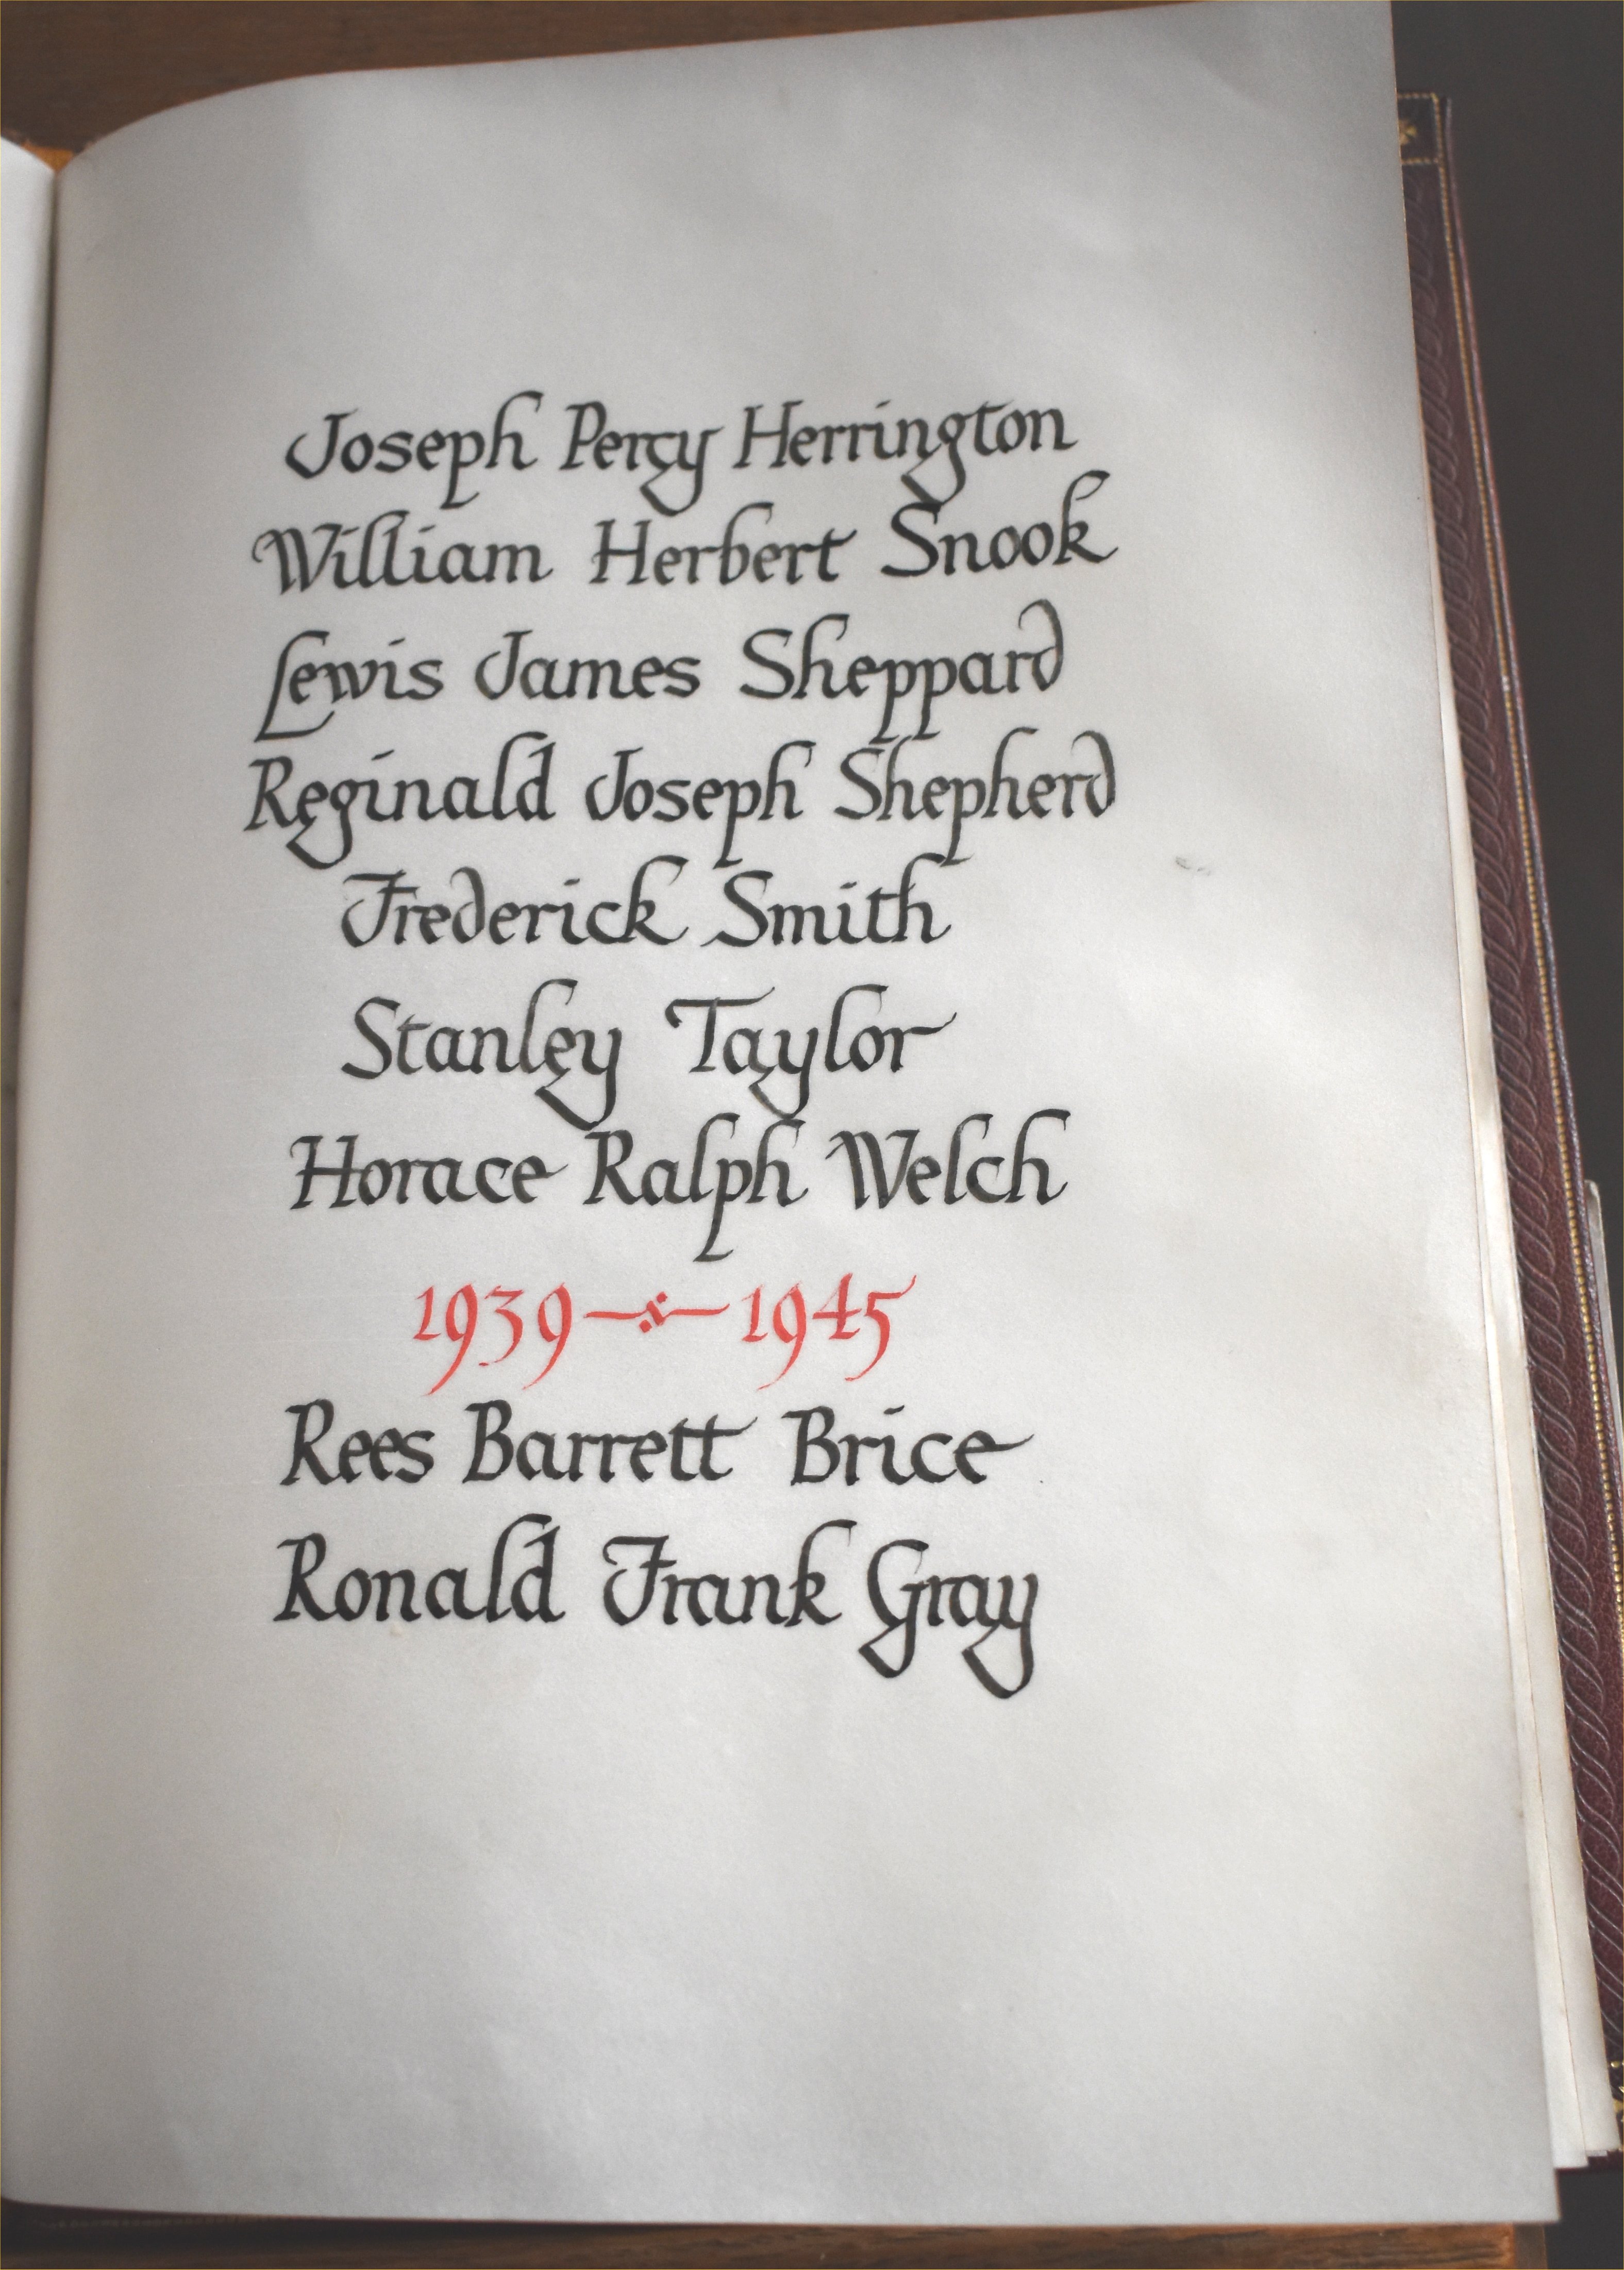 Joseph Percy Herrington
William Herbert Snook
Lewis James Sheppard
Reginald Joseph Shepherd
Frederick Smith
Stanley Taylor
Horace Ralph Welch
1939 — 1945
Rees Barrett Brice
Ronald Frank Gray